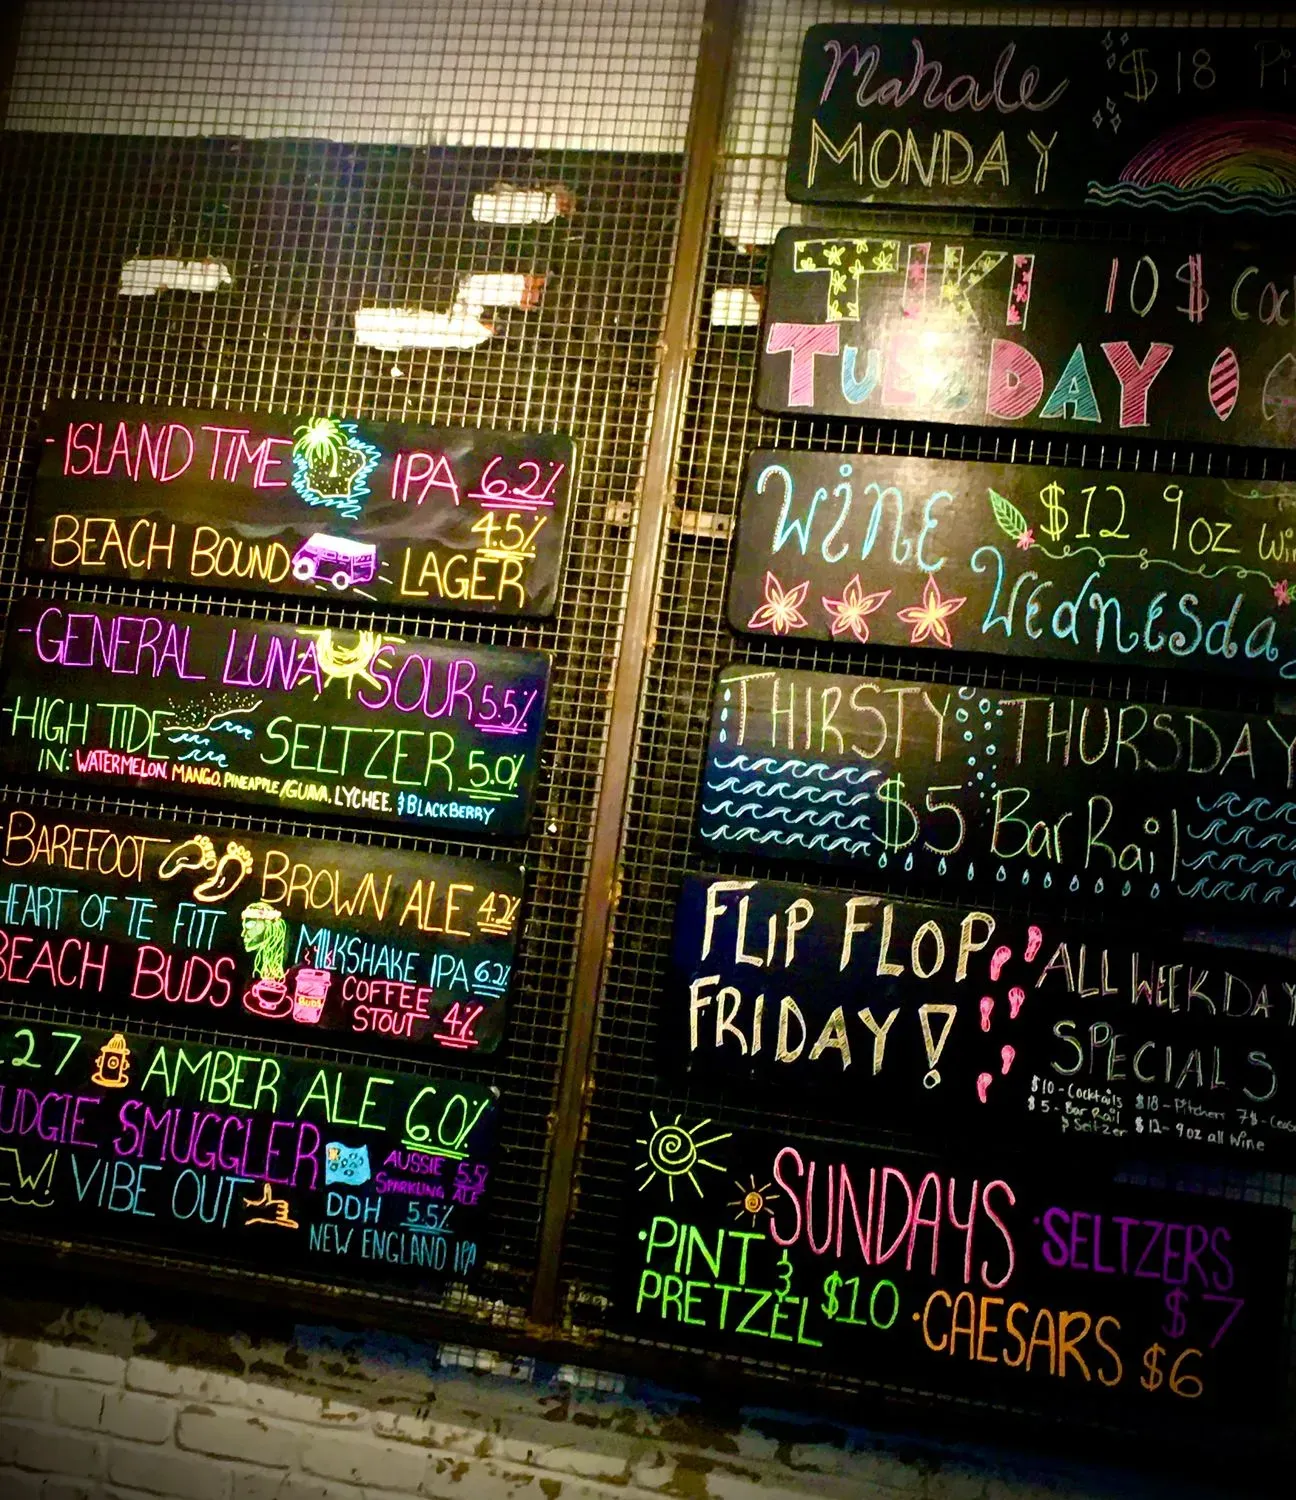 - ISLAND TIME IPA 6.2%
- BEACH BOUND LAGER 4.5%
- GENERAL LUNA SOUR 5.5%
- HIGH TIDE SELTZER 5.0%
IN: WATERMELON, MANGO, PINEAPPLE/GUAVA, LYCHEE, & BLACKBERRY
BAREFOOT BROWN ALE 4.2%
HEART OF TE FITI MILKSHAKE IPA 6.2%
BEACH BUDS COFFEE STOUT 4%
27 AMBER ALE 6.0%
UDGIE SMUGGLER AUSSIE SPARKLING ALE 5.5%
EW! VIBE OUT DDH 5.5%
NEW ENGLAND IPA
Mahalo $18 Pi
MONDAY
TIKI 10$ Coc
TUESDAY
WiNE $12 9oz Win
WEdnESday
THIRSTY THURSDAY
$5 Bar Rail
FLIP FLOP
FRIDAY!
ALL WEEKDAY
SPECIALS
$10 - Cocktails $18 - Pitchers 7$ - Ceas
$5 - Bar Rail $12 - 9oz all Wine
& Seltzer
SUNDAYS
• PINT & PRETZEL $10
• SELTZERS $7
• CAESARS $6